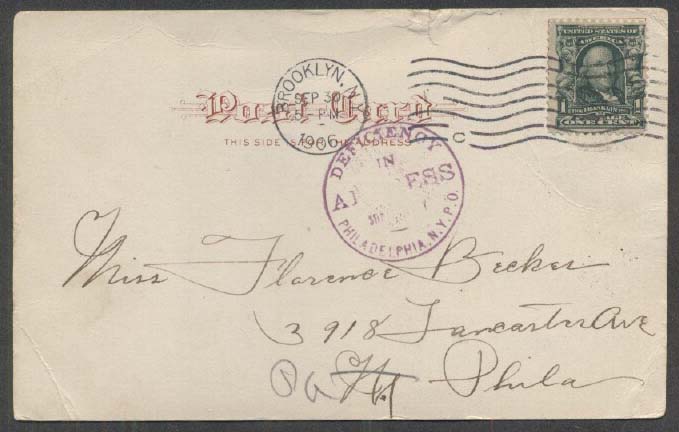 UNITED STATES OF AMERICA
1 1
FRANKLIN
ONE CENT
BROOKLYN, N.Y.
SEP 30
PM
1906
C
Post Card
THIS SIDE IS FOR THE ADDRESS
DEFICIENCY
IN
ADDRESS
PHILADELPHIA, N.Y. P.O.
Miss Florence Becker
3918 Lancaster Ave
Phila
Pa